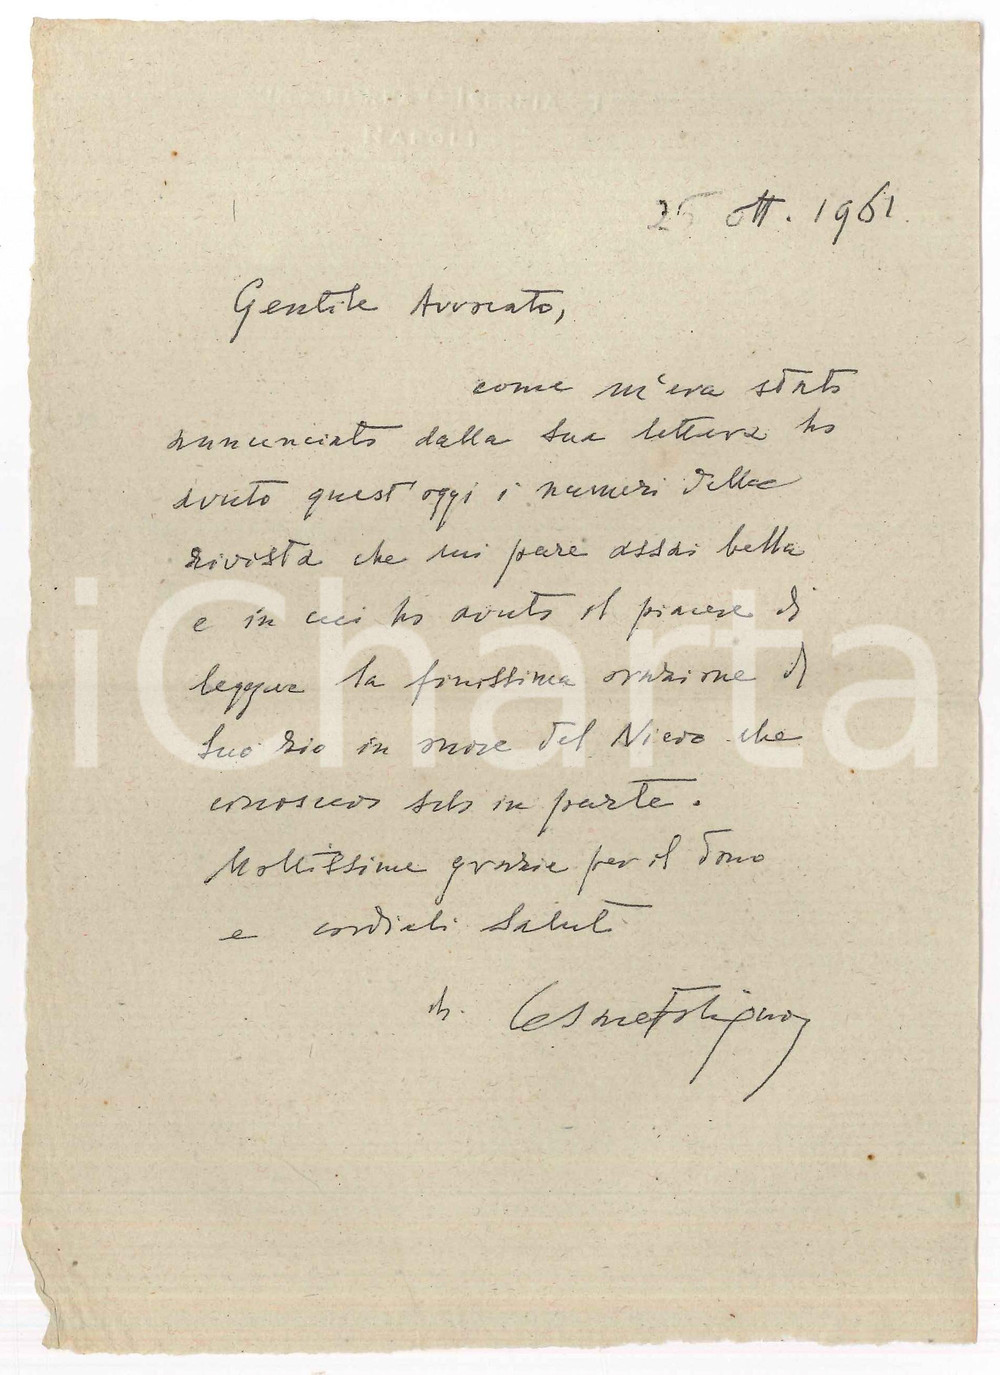 25 ott. 1961
Gentile Avvocato,
come m'era stato
annunciato dalla sua lettera ho
avuto quest'oggi i numeri della
rivista che mi pare assai bella
e in cui ho avuto il piacere di
leggere la finissima orazione di
suo zio in onore del Nievo che
conoscevo solo in parte.
Moltissime grazie per il dono
e cordiali saluti
Cesare Foligno
iCharta
NAPOLI